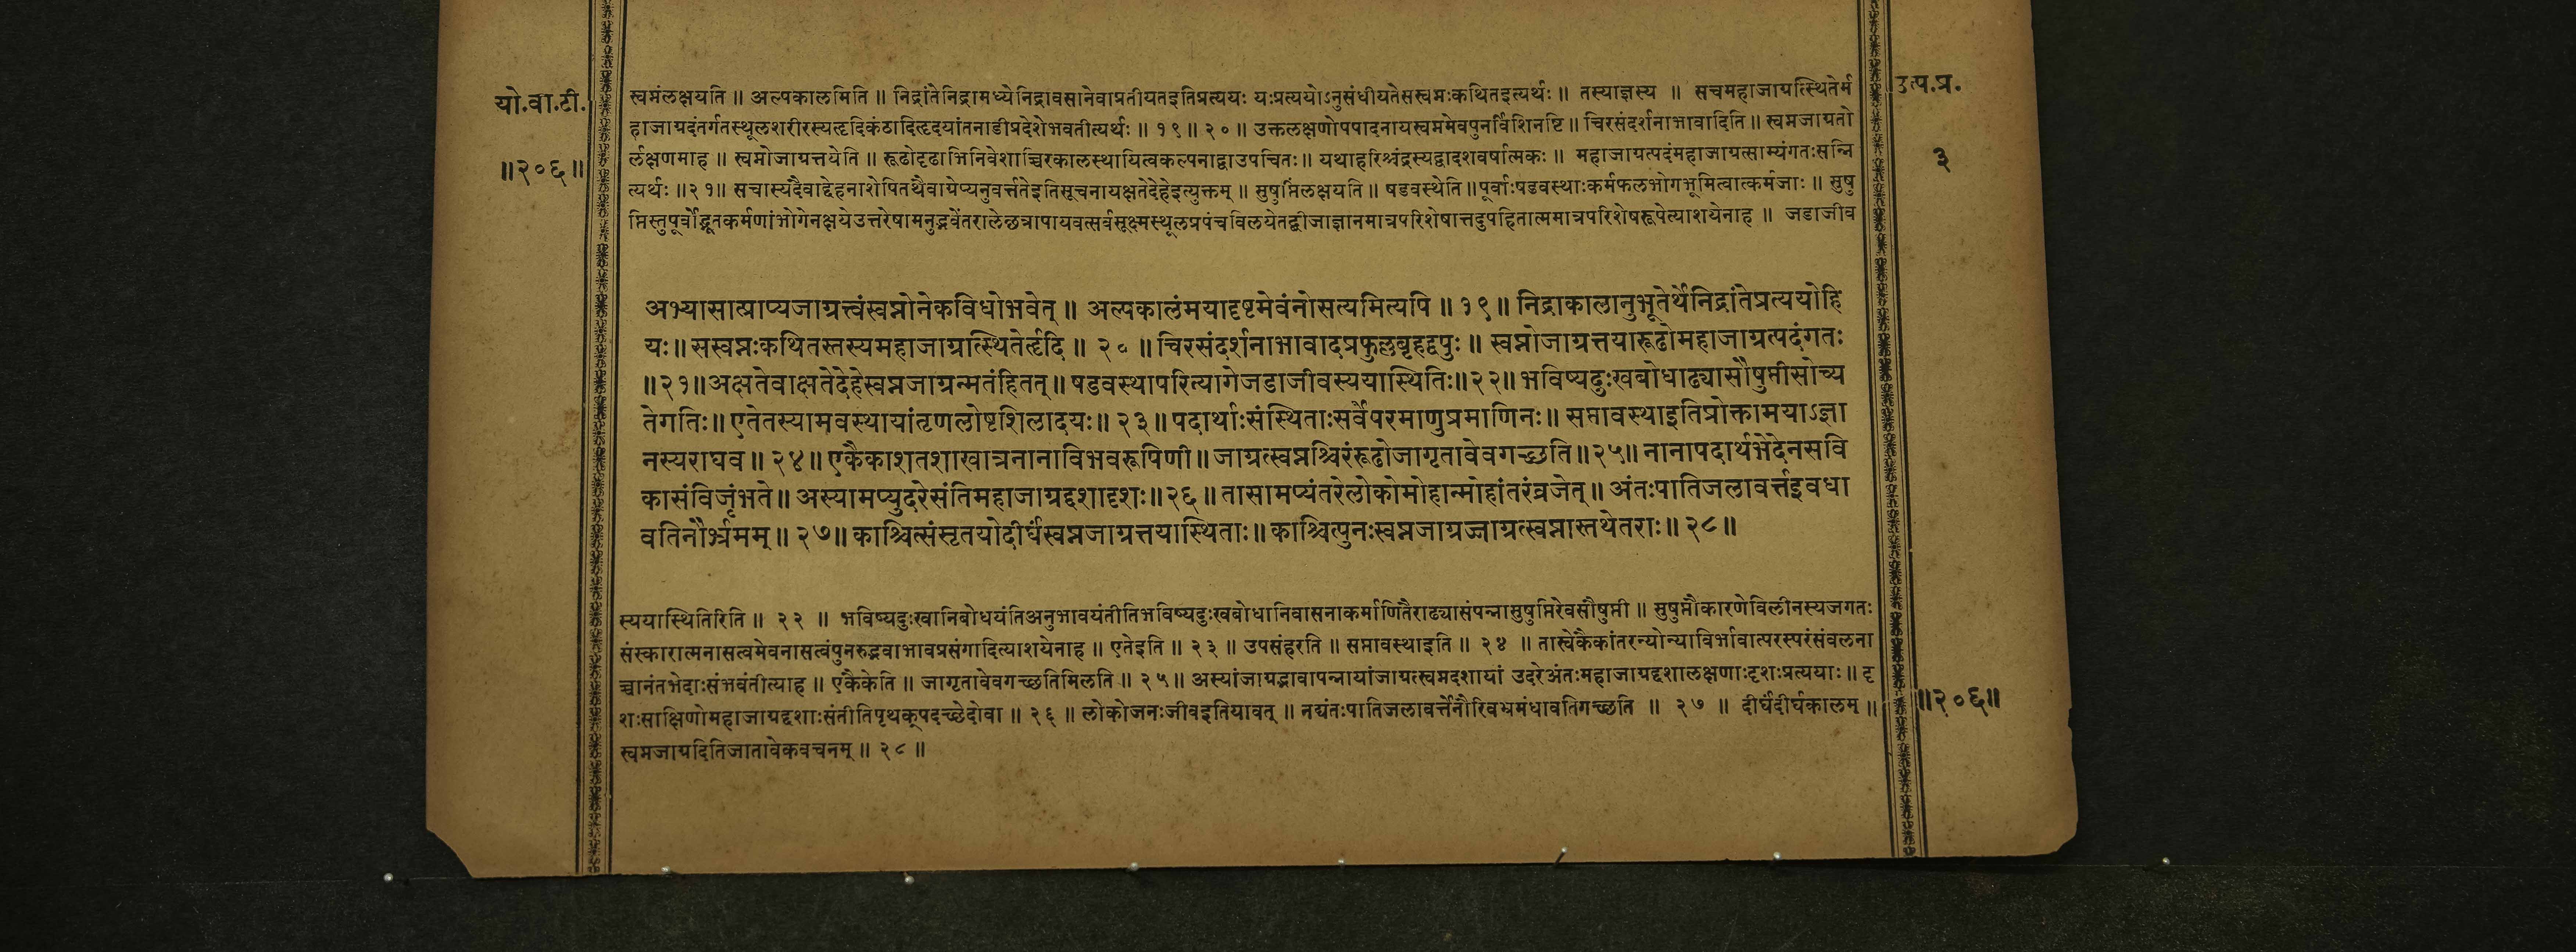 यो.वा.टी.
॥२०६॥
उत्प.प्र.
३
स्वप्नंलक्षयति ॥ अल्पकालमिति ॥ निद्रांतेनिद्रामध्येनिद्रावसानेवाप्रतीयतइतिप्रत्ययः यःप्रत्ययोऽनुसंधीयतेसस्वप्नःकथितइत्यर्थः ॥ तस्याज्ञस्य ॥ सचमहाजाग्रत्स्थितेर्म
हाजाग्रदंतर्गतस्थूलशरीरस्यहृदिकंठादिहृदयांतनाडीप्रदेशेभवतीत्यर्थः ॥ १९ ॥ २० ॥ उक्तलक्षणोपपादनायस्वप्नमेवपुनर्विशिनष्टि ॥ चिरसंदर्शनाभावादिति ॥ स्वप्नजाग्रतो
र्लक्षणमाह ॥ स्वप्नोजाग्रत्तयेति ॥ रूढोदृढाभिनिवेशाच्चिरकालस्थायित्वकल्पनाद्वाउपचितः ॥ यथाहरिश्चंद्रस्यद्वादशवर्षात्मकः ॥ महाजाग्रत्पदंमहाजाग्रत्साम्यंगतःसन्नि
त्यर्थः ॥२१॥ सचास्यदैवाद्देहनाशेपितथैवाग्रेप्यनुवर्त्ततेइतिसूचनायक्षतेदेहेइत्युक्तम् ॥ सुषुप्तिंलक्षयति ॥ षडवस्थेति ॥पूर्वाःषडवस्थाःकर्मफलभोगभूमित्वात्कर्मजाः ॥ सुषु
प्तिस्तुपूर्वोद्भूतकर्मणांभोगेनक्षयेउत्तरेषामनुद्भवेंतरालेछत्रापायवत्सर्वसूक्ष्मस्थूलप्रपंचविलयेतद्बीजाज्ञानमात्रपरिशेषात्तदुपहितात्ममात्रपरिशेषरूपेत्याशयेनाह ॥ जडाजीव
अभ्यासात्प्राप्यजाग्रत्त्वंस्वप्नोनेकविधोभवेत् ॥ अल्पकालंमयादृष्टमेवंनोसत्यमित्यपि ॥ १९ ॥ निद्राकालानुभूतेर्थेनिद्रांतेप्रत्ययोहि
यः ॥ सस्वप्नःकथितस्तस्यमहाजाग्रत्स्थितेर्हृदि ॥ २० ॥ चिरसंदर्शनाभावादप्रफुल्लबृहद्वपुः ॥ स्वप्नोजाग्रत्तयारूढोमहाजाग्रत्पदंगतः
॥२१॥अक्षतेवाक्षतेदेहेस्वप्नजाग्रन्मतंहितत् ॥ षडवस्थापरित्यागेजडाजीवस्ययास्थितिः॥२२॥ भविष्यदुःखबोधाढ्यासौषुप्तीसोच्य
तेगतिः॥ एतेतस्यामवस्थायांतृणलोष्टशिलादयः॥ २३ ॥ पदार्थाःसंस्थिताःसर्वेपरमाणुप्रमाणिनः॥ सप्तावस्थाइतिप्रोक्तामयाऽज्ञा
नस्यराघव ॥ २४ ॥ एकैकाशतशाखात्रनानाविभवरूपिणी ॥ जाग्रत्स्वप्नश्चिरंरूढोजागृतावेवगच्छति ॥२५॥ नानापदार्थभेदेनसवि
कासंविजृंभते ॥ अस्यामप्युदरेसंतिमहाजाग्रद्दशादृशः ॥२६॥ तासामप्यंतरेलोकोमोहान्मोहांतरंव्रजेत् ॥ अंतःपातिजलावर्त्तइवधा
वतिनौर्भ्रमम् ॥ २७॥ काश्चित्संसृतयोदीर्घंस्वप्नजाग्रत्तयास्थिताः ॥ काश्चित्पुनःस्वप्नजाग्रज्जाग्रत्स्वप्नास्तथेतराः ॥ २८ ॥
स्ययास्थितिरिति ॥ २२ ॥ भविष्यदुःखानिबोधयंतिअनुभावयंतीतिभविष्यदुःखबोधानिवासनाकर्माणितैराढ्यासंपन्नासुषुप्तिरेवसौषुप्ती ॥ सुषुप्तौकारणेविलीनस्यजगतः
संस्कारात्मनासत्वमेवनासत्वंपुनरुद्भवाभावप्रसंगादित्याशयेनाह ॥ एतेइति ॥ २३ ॥ उपसंहरति ॥ सप्तावस्थाइति ॥ २४ ॥ तास्वेकैकांतरन्योन्याविर्भावात्परस्परंसंवलना
च्चानंतभेदाःसंभवंतीत्याह ॥ एकैकेति ॥ जागृतावेवगच्छतिमिलति ॥ २५ ॥ अस्यांजाग्रद्भावापन्नायांजाग्रत्स्वप्नदशायां उदरेअंतःमहाजाग्रद्दशालक्षणाःदृशःप्रत्ययाः ॥ दृ
शःसाक्षिणोमहाजाग्रद्दशाःसंतीतिपृथक्पदच्छेदोवा ॥ २६ ॥ लोकोजनःजीवइतियावत् ॥ नद्यंतःपातिजलावर्त्तेनौरिवभ्रमंधावतिगच्छति ॥ २७ ॥ दीर्घंदीर्घकालम् ॥
स्वप्नजाग्रदितिजातावेकवचनम् ॥ २८ ॥
॥२०६॥